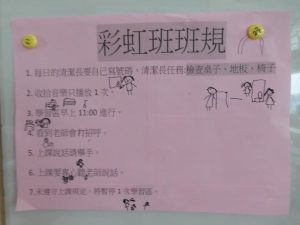 彩虹班班規
1. 每日的清潔長要自己寫號碼，清潔長任務:檢查桌子、地板、椅子
2. 收拾音樂只播放1次。
3. 學習區早上11:00進行。
4. 看到老師會打招呼。
5. 上課說話請舉手。
6. 上課要專心聽老師說話。
7. 未遵守上課規定，將暫停1次學習區。